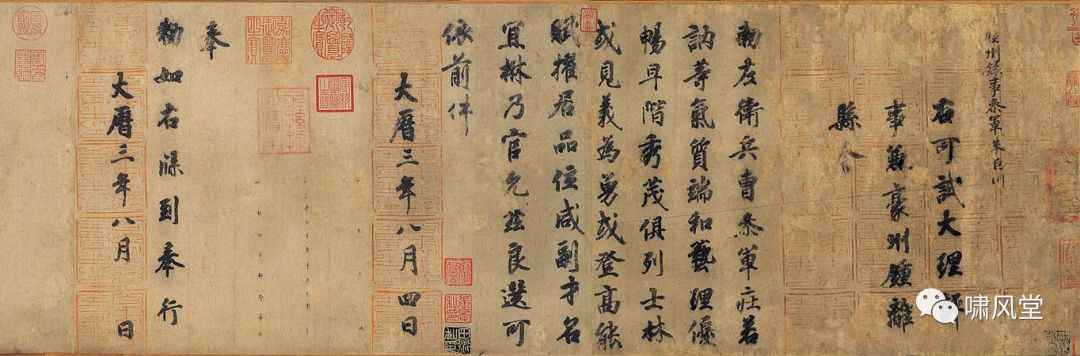 睦州錄事參軍朱巨川
右可試大理評
事兼豪州鍾離
縣令
勅左衛兵曹參軍莊若
訥等氣質端和藝理優
暢早階秀茂俱列士林
或見義為勇或登高能
賦擢居品位咸副才名
宜楙乃官允茲良選可
依前件
大曆三年八月四日
奉
勅如右牒到奉行
大曆三年八月 日
啸风堂